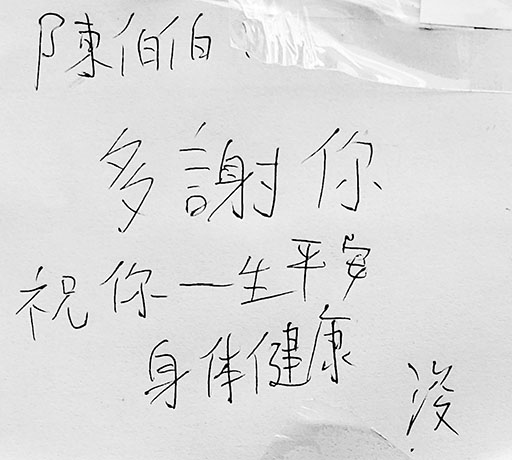 陳伯伯：
多謝你
祝你一生平安
身体健康
浚